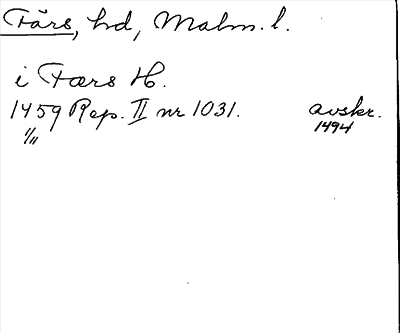 Färs, hd, Malm. l.
i Færs H.
1459 Rep. II nr 1031. avskr.
1/11 1494